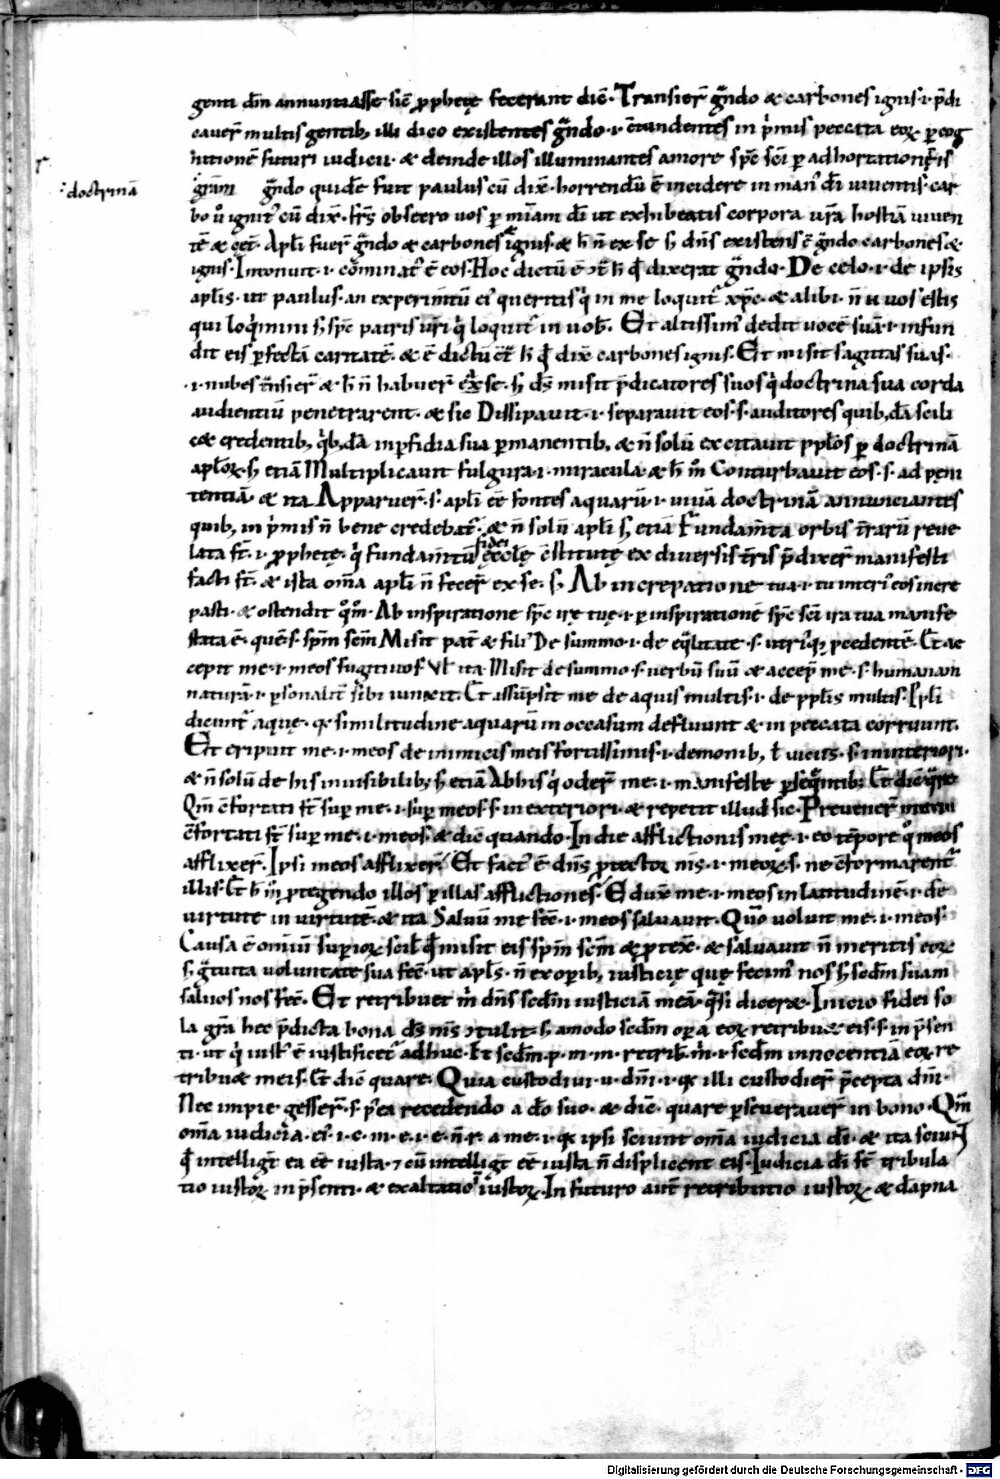 genti dm̄ annuntiasse sic̄ ꝓphetę fecerant dic̄. Transier̄ g̃ndo & carbones ignis .i. p̄di
cauer̄ multis gentib; illi dico existentes g̃ndo .i. c̄tundentes in p̓mis peccata eoꝝ ꝑ cog
nitionē futuri iudicii & deinde illos illuminantes amore sp̄c sc̄i ꝑ adhortationis
doctrinā
gr̄am g̃ndo quidē fuit paulus cū dix̄. horrendū ē incidere in man᷒ dī viventis. car
bo ū ignit᷒ cū dix̄. fr̄s obsecro uos ꝑ mīam dī ut exhibeatis corpora ur̄a hostiā viven
tē & cet̄. Apl̄i fuer̄ g̃ndo & carbones ignis & h̄ n̄ ex se s; dn̄s existens ē g̃ndo carbones &
ignis. Intonuit .i. cōminat᷒ ē eos. Hoc dictū ē h̄ qd̄ dixerat g̃ndo. De celo .i. de ipsis
apl̄is. ut paulus. an experim̄tū ei᷒ queritis q̓ in me loquit᷒ xp̄c. & alibi. n̄ ū uos estis
qui loq̓mini s; sp̄c patris ur̄i q̓ loquit᷒ in uob̄. Et altissim᷒ dedit uocē suā .i. infun
dit eis ꝑfectā caritatē. & ē dictū h̄ qd̄ dix̄ carbones ignis. Et misit sagittas suas.
.i. nubes t̄nsier̄ & h̄ n̄ habuer̄ ex se. s; ds̄ misit p̄dicatores suos q̓ doctrina sua corda
audientiū penetrarent. & sic Dissipauit .i. separauit eos .s. auditores quib;dā scili
c& credentib; q̓b;dā in ꝑfidia sua ꝑmanentib; & n̄ solū excitauit ppl̄os ꝑ doctrinā
apl̄oꝝ s; etiā Multiplicauit fulgura .i. miracula & h̄ m̄ Conturbauit eos .s. ad pęni
tentiā. & ita Apparuer̄ .s. apl̄i eē fontes aquarū .i. uiuā doctrinā annunciantes
quib; in p̓mis n̄ bene credebat᷒. & n̄ solū apl̄i s; etiā Fundam̄ta orbis t̄rarū reue
fidei
lata st̄ .i. ꝓphetę. q̓ fundam̄tū ęccl̄ę c̄stitutę ex diuersis t̄ris p̄dixer̄ manifesti
facti st̄. & ista om̄a apl̄i n̄ fecer̄ ex se .s. Ab increpatione tua .i. tu interi᷒ eos incre
pasti. & ostendit q̊m̊. Ab inspiratione sp̄c irę tuę .i. ꝑ inspirationē sp̄c sc̄i ira tua manife
stata ē. quē .s. sp̄m sc̄m Misit pat̄ & fili᷒ De summo .i. de eq̃litate .s. utri᷒q; ꝓcedentē. Et ac
cepit me .i. meos fugitiuos Vl̄ ita. Misit de summo .s. uerbū suū & accep̄ me .s. humanam
naturā .i. ꝑsonalit̄ sibi iunxit. Et assūpsit me de aquis multis .i. de ppl̄is multis. Ppl̄i
dicunt᷒ aquę. q̄ similitudine aquarū in occasum defluunt & in peccata corruunt.
Et eripuit me .i. meos de inimicis meis fortissimis .i. demonib; ł uiciis .s. in interiori.
& n̄ solū de his inuisibilib; s; etiā Ab his q̓ oder̄ me .i. manifeste ꝑseq̄ntib; Et dic̄ q̃re.
Qm̄ c̄fortati st̄ suꝑ me .i. suꝑ meos .s. in exteriori. & repetit illud sic. Preuener̄ me in
c̄fortati st̄ suꝑ me .i. meos. & dic̄ quando. In die afflictionis meę .i. eo tēpore q̊ meos
afflixer̄. Ipsi meos afflixer̄. Et fact᷒ ē dn̄s ꝓtector m̄s .i. meoꝝ .s. ne c̄formarent᷒
illis. Et h̄ m̄ ꝓtegendo illos ꝑ illas afflictiones. Eduxit me .i. meos in latitudinē .i. de
uirtute in uirtutē. & ita Saluū me fec̄ .i. meos saluauit. Qm̄o uoluit me .i. meos.
Causa ē omniū suꝑioꝝ scil̄ qd̄ misit eis sp̄m sc̄m & ꝓtex̄. & saluauit n̄ meritis eoꝝ
s; g̃tuita uoluntate sua fec̄. ut apl̄s. n̄ ex oꝑib; iusticię quę fecim᷒ nos s; sc̄dm suam
saluos nos fec̄. Et retribuet m̄ dn̄s sc̄dm iusticiā meā. q̃si dicer&. Inicio fidei so
la gr̄a hec p̄dicta bona ds̄ m̄s ɔtulit. s; amodo sc̄dm oꝑa eoꝝ retribu& eis .s. in p̄sen
ti. ut q̓ iust᷒ ē iustificet᷒ adhuc. Et sc̄dm .p. m. m. retrib̄ .m̄. .i. sc̄dm innocentiā eoꝝ re
tribu& meis. Et dic̄ quare. Quia custodiui .u. dn̄i .i. q̄ illi custodier̄ p̄cepta dn̄i.
Nec impie gesser̄ .s. p̓ ea recedendo a dō suo. & dic̄. quare ꝑseuerauer̄ in bono. Qm̄
om̄a iudicia. ei᷒ .i. c. m. e. r. e. n̄. r. a me .i. q̄ ipsi sciunt om̄a iudicia dī. & ita sciunt
qd̄ intelligt̄ ea eē iusta. ⁊ cū intelligt̄ eē iusta n̄ displicent eis. Iudicia dī st̄ tribula
tio iustoꝝ in p̄senti. & exaltatio iustoꝝ. In futuro aut̄ retributio iustoꝝ & dāpna
Digitalisierung gefördert durch die Deutsche Forschungsgemeinschaft - DFG